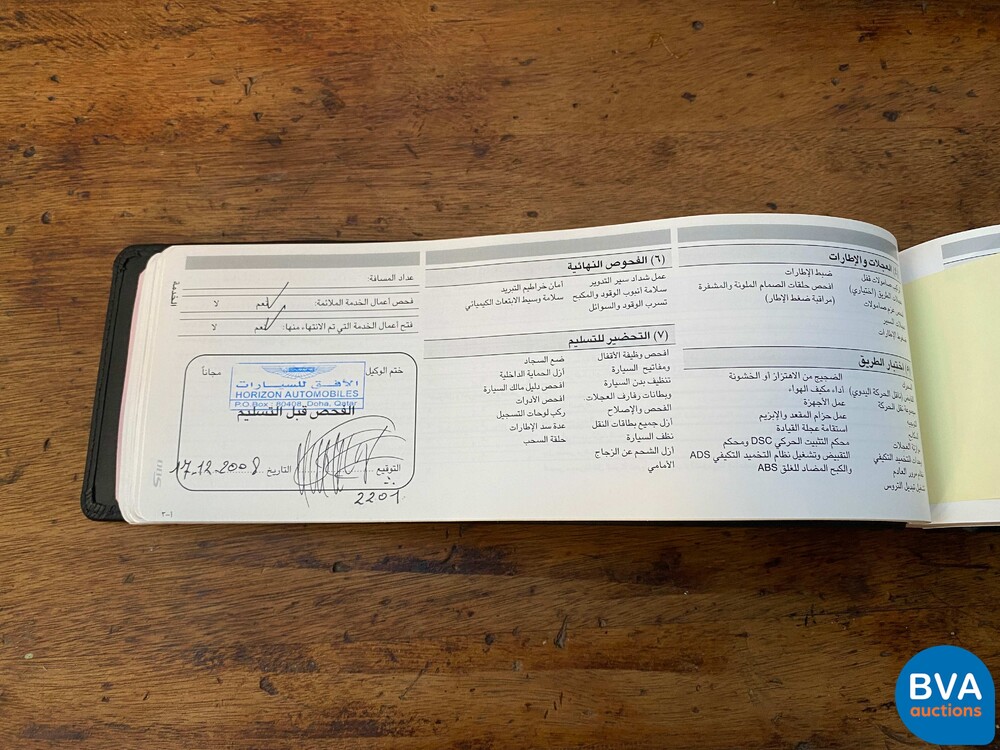 العجلات والإطارات
ضبط الإطارات
افحص حلقات الصمام الملونة والمشفرة
(مراقبة ضغط الإطار)
اختبار الطريق
الضجيج من الاهتزاز أو الخشونة
أداء مكيف الهواء
عمل الأجهزة
عمل حزام المقعد والإبزيم
استقامة عجلة القيادة
محكم التثبيت الحركي DSC ومحكم
التقبيض وتشغيل نظام التخميد التكيفي ADS
والكبح المضاد للغلق ABS
(٦) الفحوص النهائية
عمل شداد سير التدوير
سلامة أنبوب الوقود والمكبح
تسرب الوقود والسوائل
أمان خراطيم التبريد
سلامة وسيط الابتعاث الكيميائي
(٧) التحضير للتسليم
افحص وظيفة الأقفال
ومفاتيح السيارة
تنظيف بدن السيارة
وبطانات رفارف العجلات
الفحص والإصلاح
أزل جميع بطاقات النقل
نظف السيارة
أزل الشحم عن الزجاج
الأمامي
ضع السجاد
أزل الحماية الداخلية
افحص دليل مالك السيارة
افحص الأدوات
ركب لوحات التسجيل
عدة سد الإطارات
حلقة السحب
الخدمة
عداد المسافة:
فحص أعمال الخدمة الملائمة: نعم لا
فتح أعمال الخدمة التي تم الانتهاء منها: نعم لا
ختم الوكيل
مجاناً
الأفق للسيارات
HORIZON AUTOMOBILES
P.O.Box : 80408, Doha, Qatar
الفحص قبل التسليم
التوقيع
التاريخ 17.12.2008
2201
٢-١
BVA
auctions